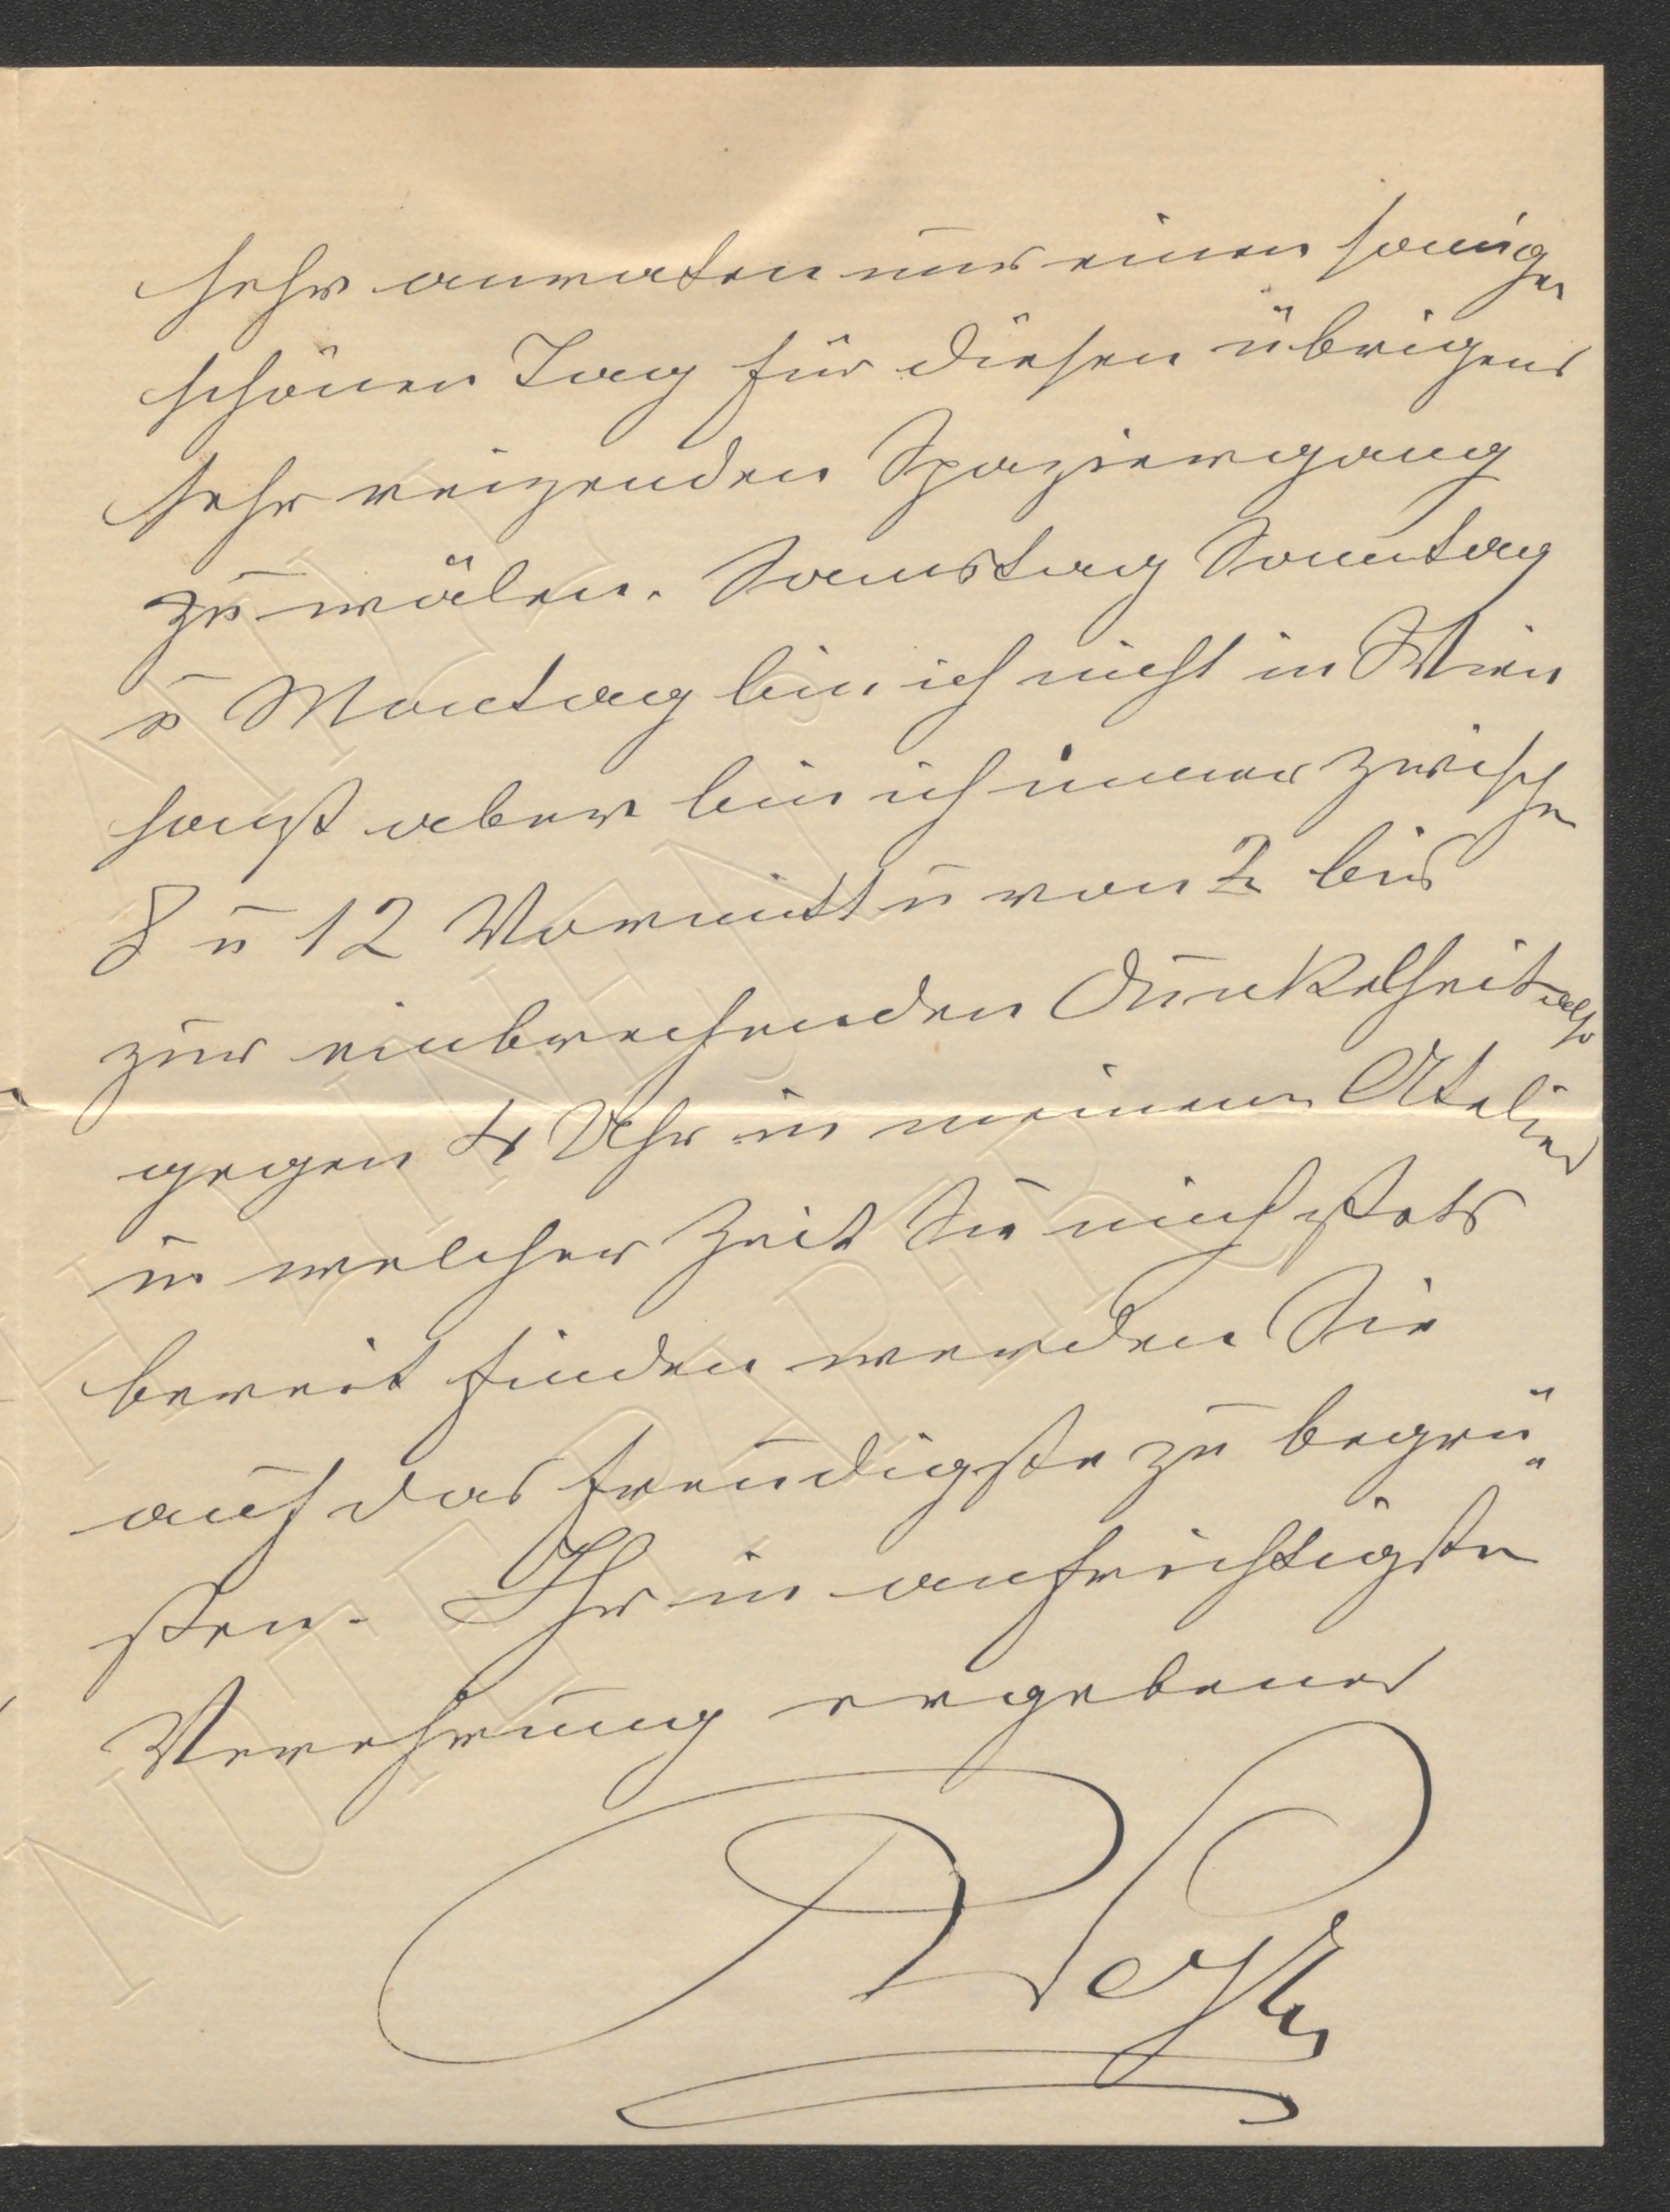 sehr anraten nur einen sonigen
schönen Tag für diesen übrigens
sehr reizenden Spaziergang
zu wälen. Samstag Sonntag
u Montag bin ich nicht in Wien
sonst aber bin ich immer zwischen
8 u 12 Vormitt u von 2 bis
zur einbrechenden Dunkelheit also
gegen 4 Uhr in meinem Atelier
in welcher Zeit Sie mich stets
bereit finden werden Sie
auf das freudigste zu begrü„
ßen. Ihr in aufrichtigster
Verehrung ergebener